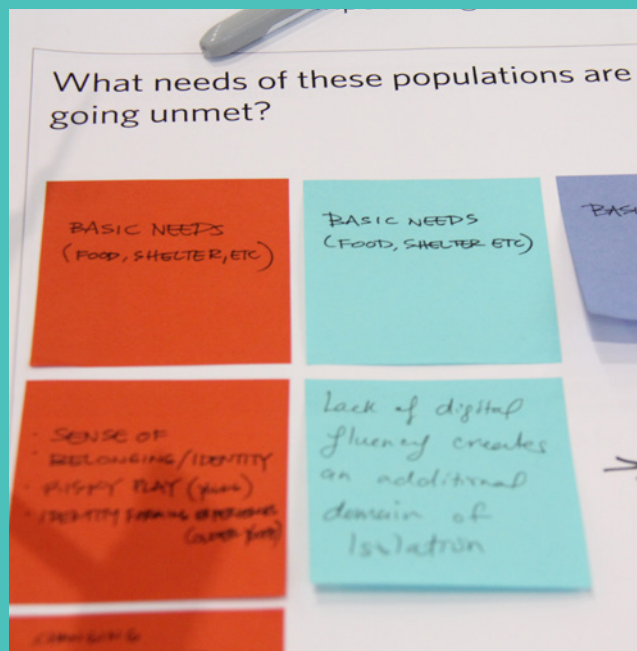 What needs of these populations are
going unmet?
BASIC NEEDS
(FOOD, SHELTER, ETC)
BASIC NEEDS
(FOOD, SHELTER ETC)
· SENSE OF
· BELONGING/IDENTITY
· RISKY PLAY
· IDENTITY FORMING EXPERIENCES
Lack of digital
fluency creates
an additional
domain of
Isolation